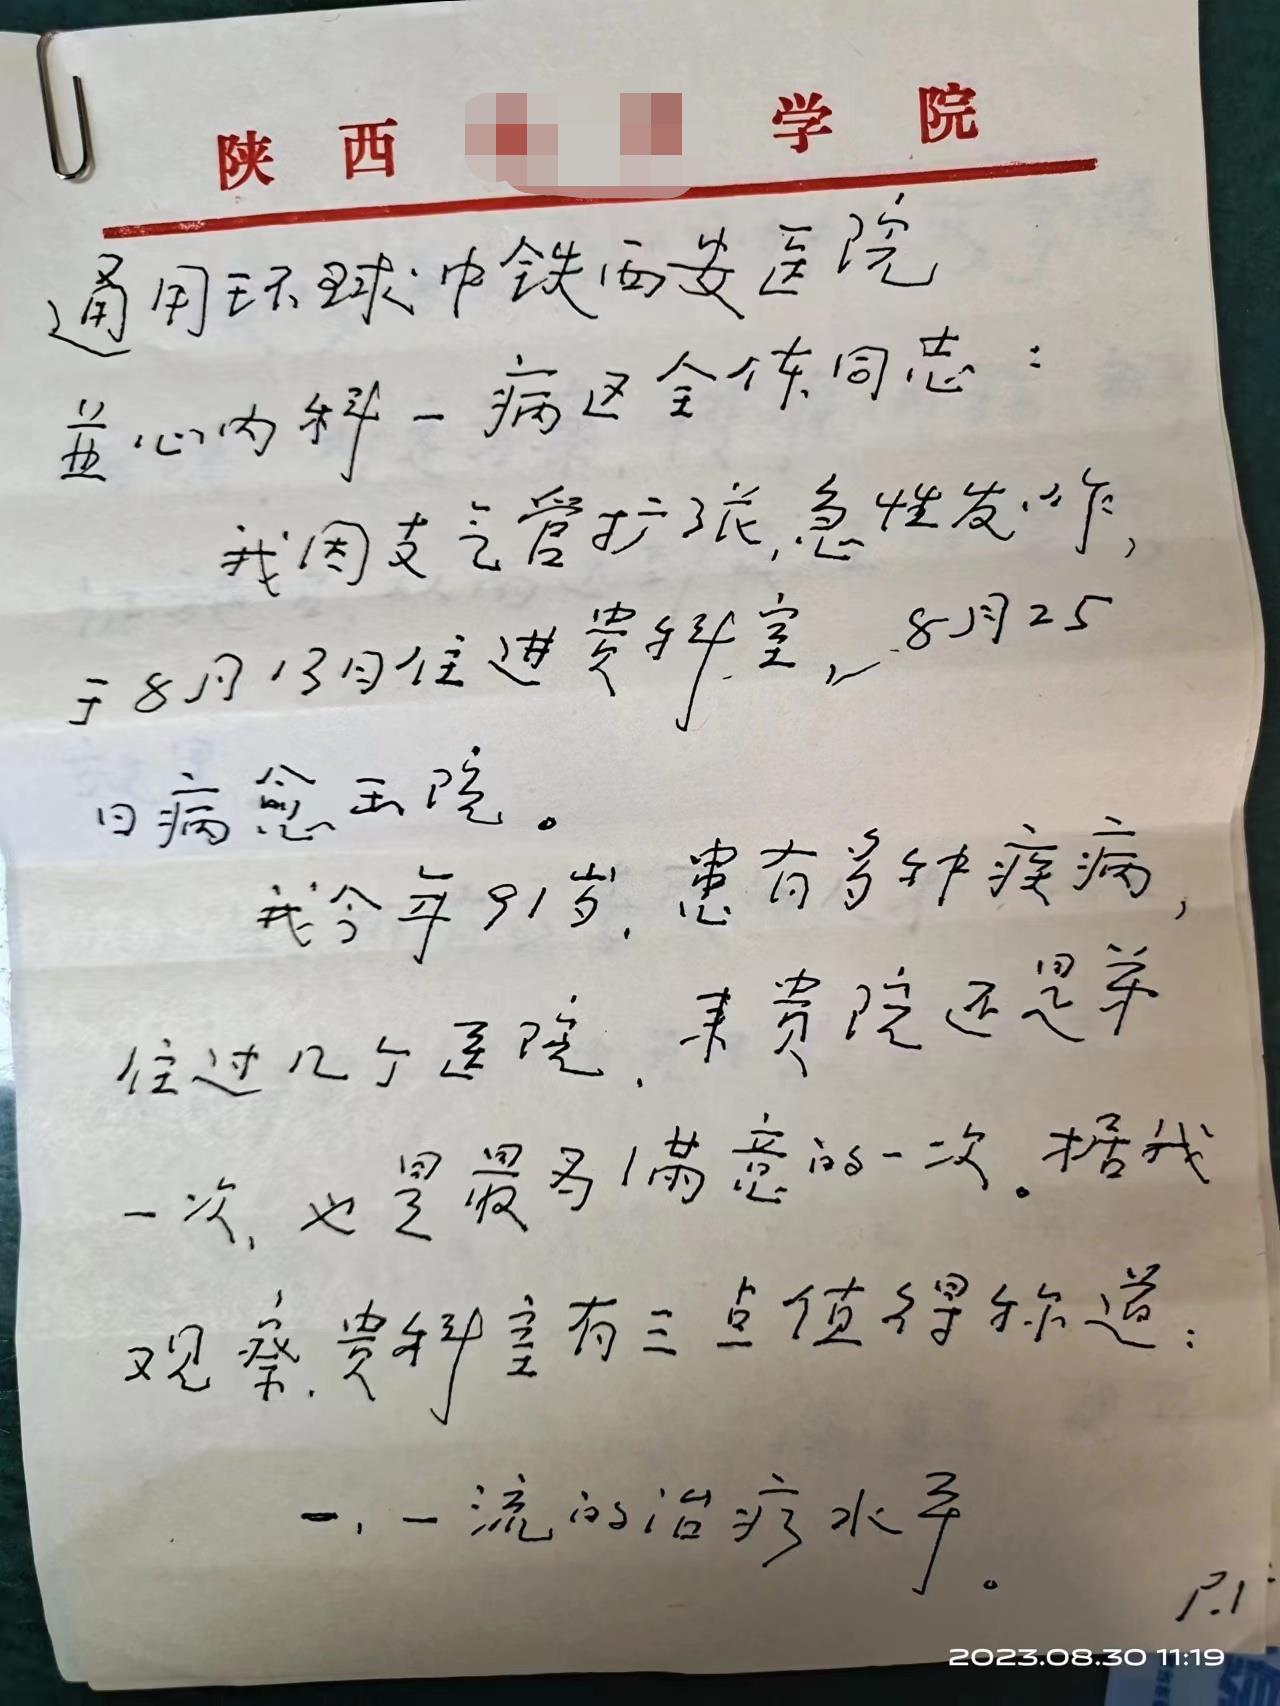 陕西 学院
通用环球中铁西安医院
并心内科一病区全体同志：
我因支气管扩张,急性发作,
于8月13日住进贵科室, 8月25
日病愈出院。
我今年91岁,患有多种疾病,
住过几个医院,来贵院还是第
一次,也是最为满意的一次。据我
观察,贵科室有三点值得称道：
一、一流的治疗水平。
P.1
2023.08.30 11:19